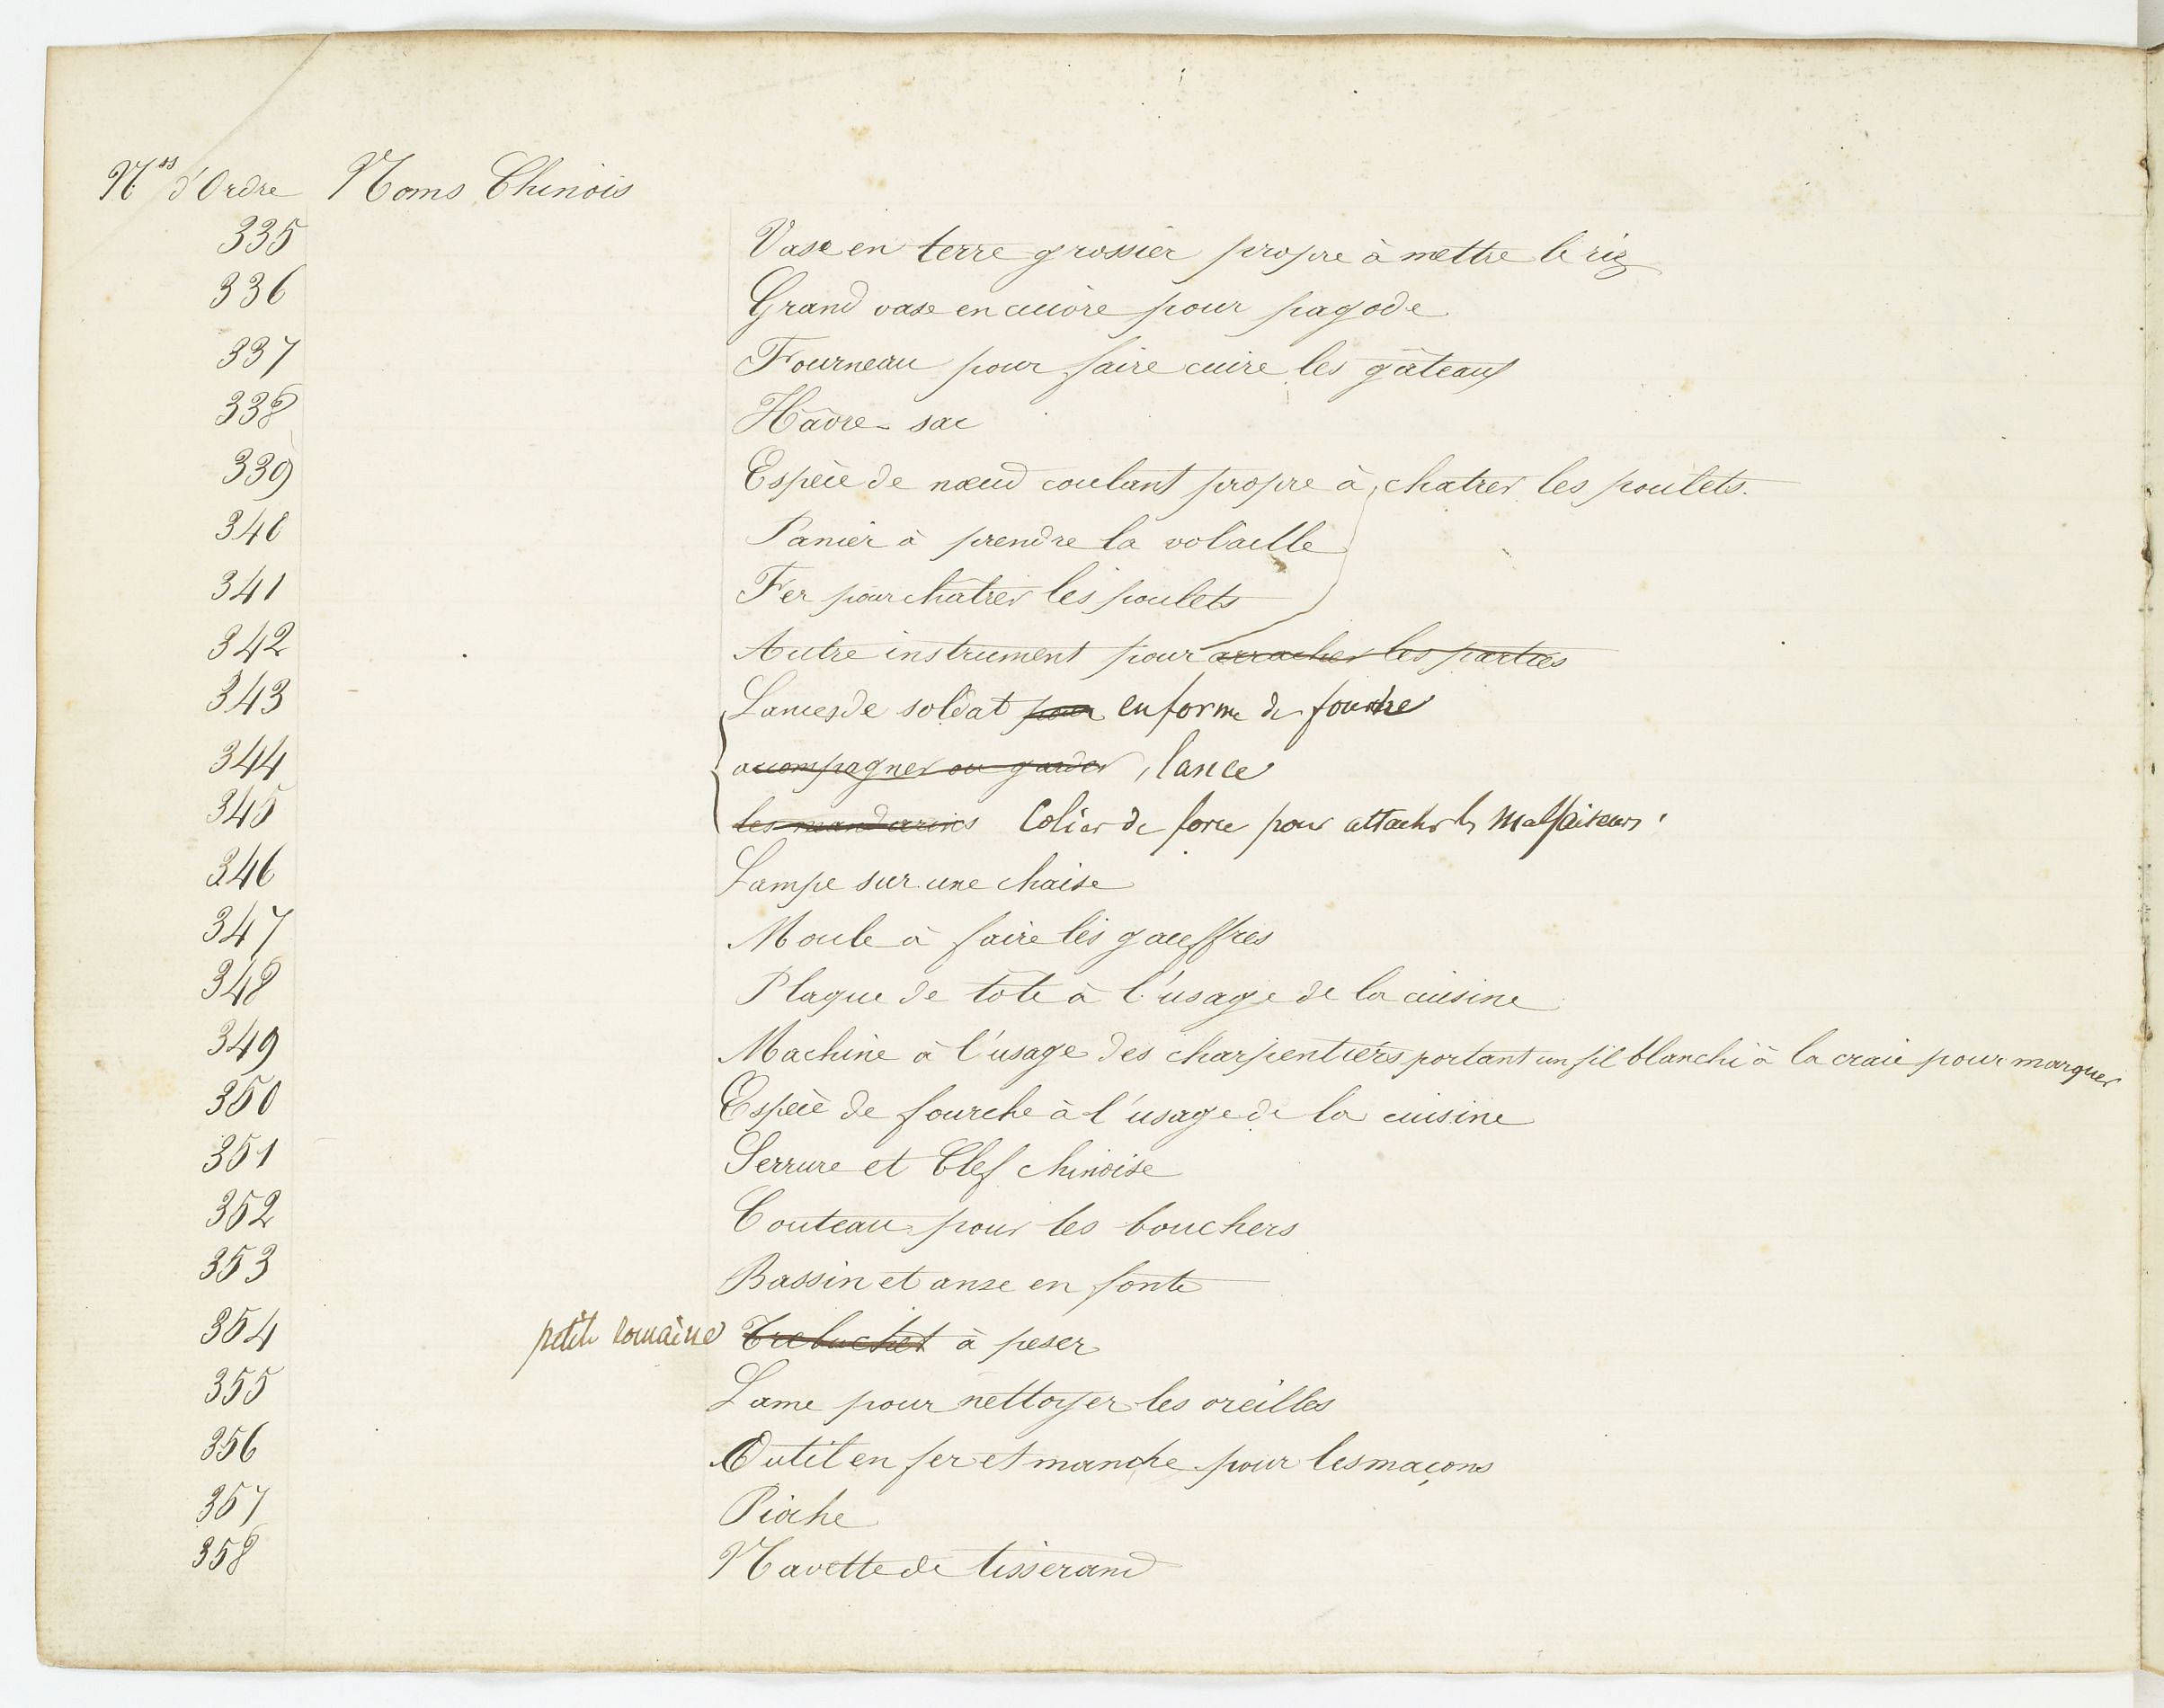 Nos d'Ordre Noms Chinois
335 Vase en terre grossier propre à mettre le riz
336 Grand vase en cuivre pour pagode
337 Fourneau pour faire cuire les gâteaux
338 Hâvre-sac
339 Espèce de nœud coulant propre à chatrer les poulets.
340 Panier à prendre la volaille
341 Fer pour châtrer les poulets
342 Autre instrument pour arracher les parties
343 Lances de soldat pour en forme de fourche
344 accompagner ou garder, lance
345 les mandarins Colier de force pour attacher les Malfaiteurs.
346 Lampe sur une chaise
347 Moule à faire les gauffres
348 Plaque de tôle à l'usage de la cuisine
349 Machine à l'usage des charpentiers portant un fil blanchi à la craie pour marquer
350 Espèce de fourche à l'usage de la cuisine
351 Serrure et Clef chinoise
352 Couteau pour les bouchers
353 Bassin et anse en fonte
354 petite romaine Trebuchet à peser
355 Lame pour nettoyer les oreilles
356 Outil en fer et manche pour les maçons
357 Pioche
358 Navette de tisserand